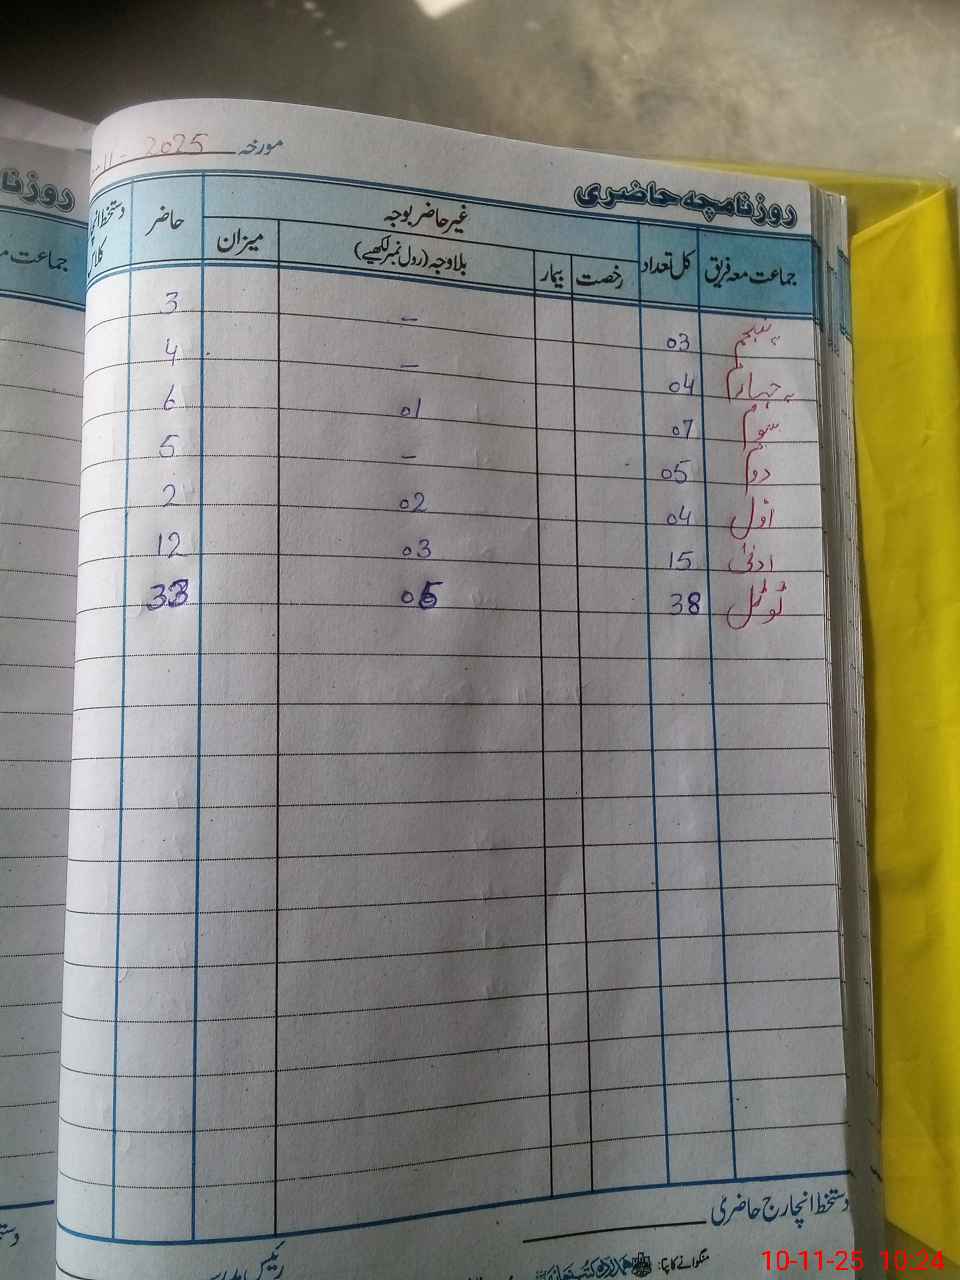 مورخہ 11-2025
روزنامچہ حاضری
جماعت معہ فریق کل تعداد غیر حاضر بوجہ حاضر دستخط انچارج کلاس
رخصت بیمار بلا وجہ (رول نمبر لکھیے) میزان
پنجم 03 – 3
چہارم 04 – 4
سوم 07 01 6
دوم 05 – 5
اول 04 02 2
ادنیٰ 15 03 12
ٹوٹل 38 05 33
دستخط انچارج حاضری
منگوانے کا پتا:
روزنا
جماعت
10-11-25 10:24